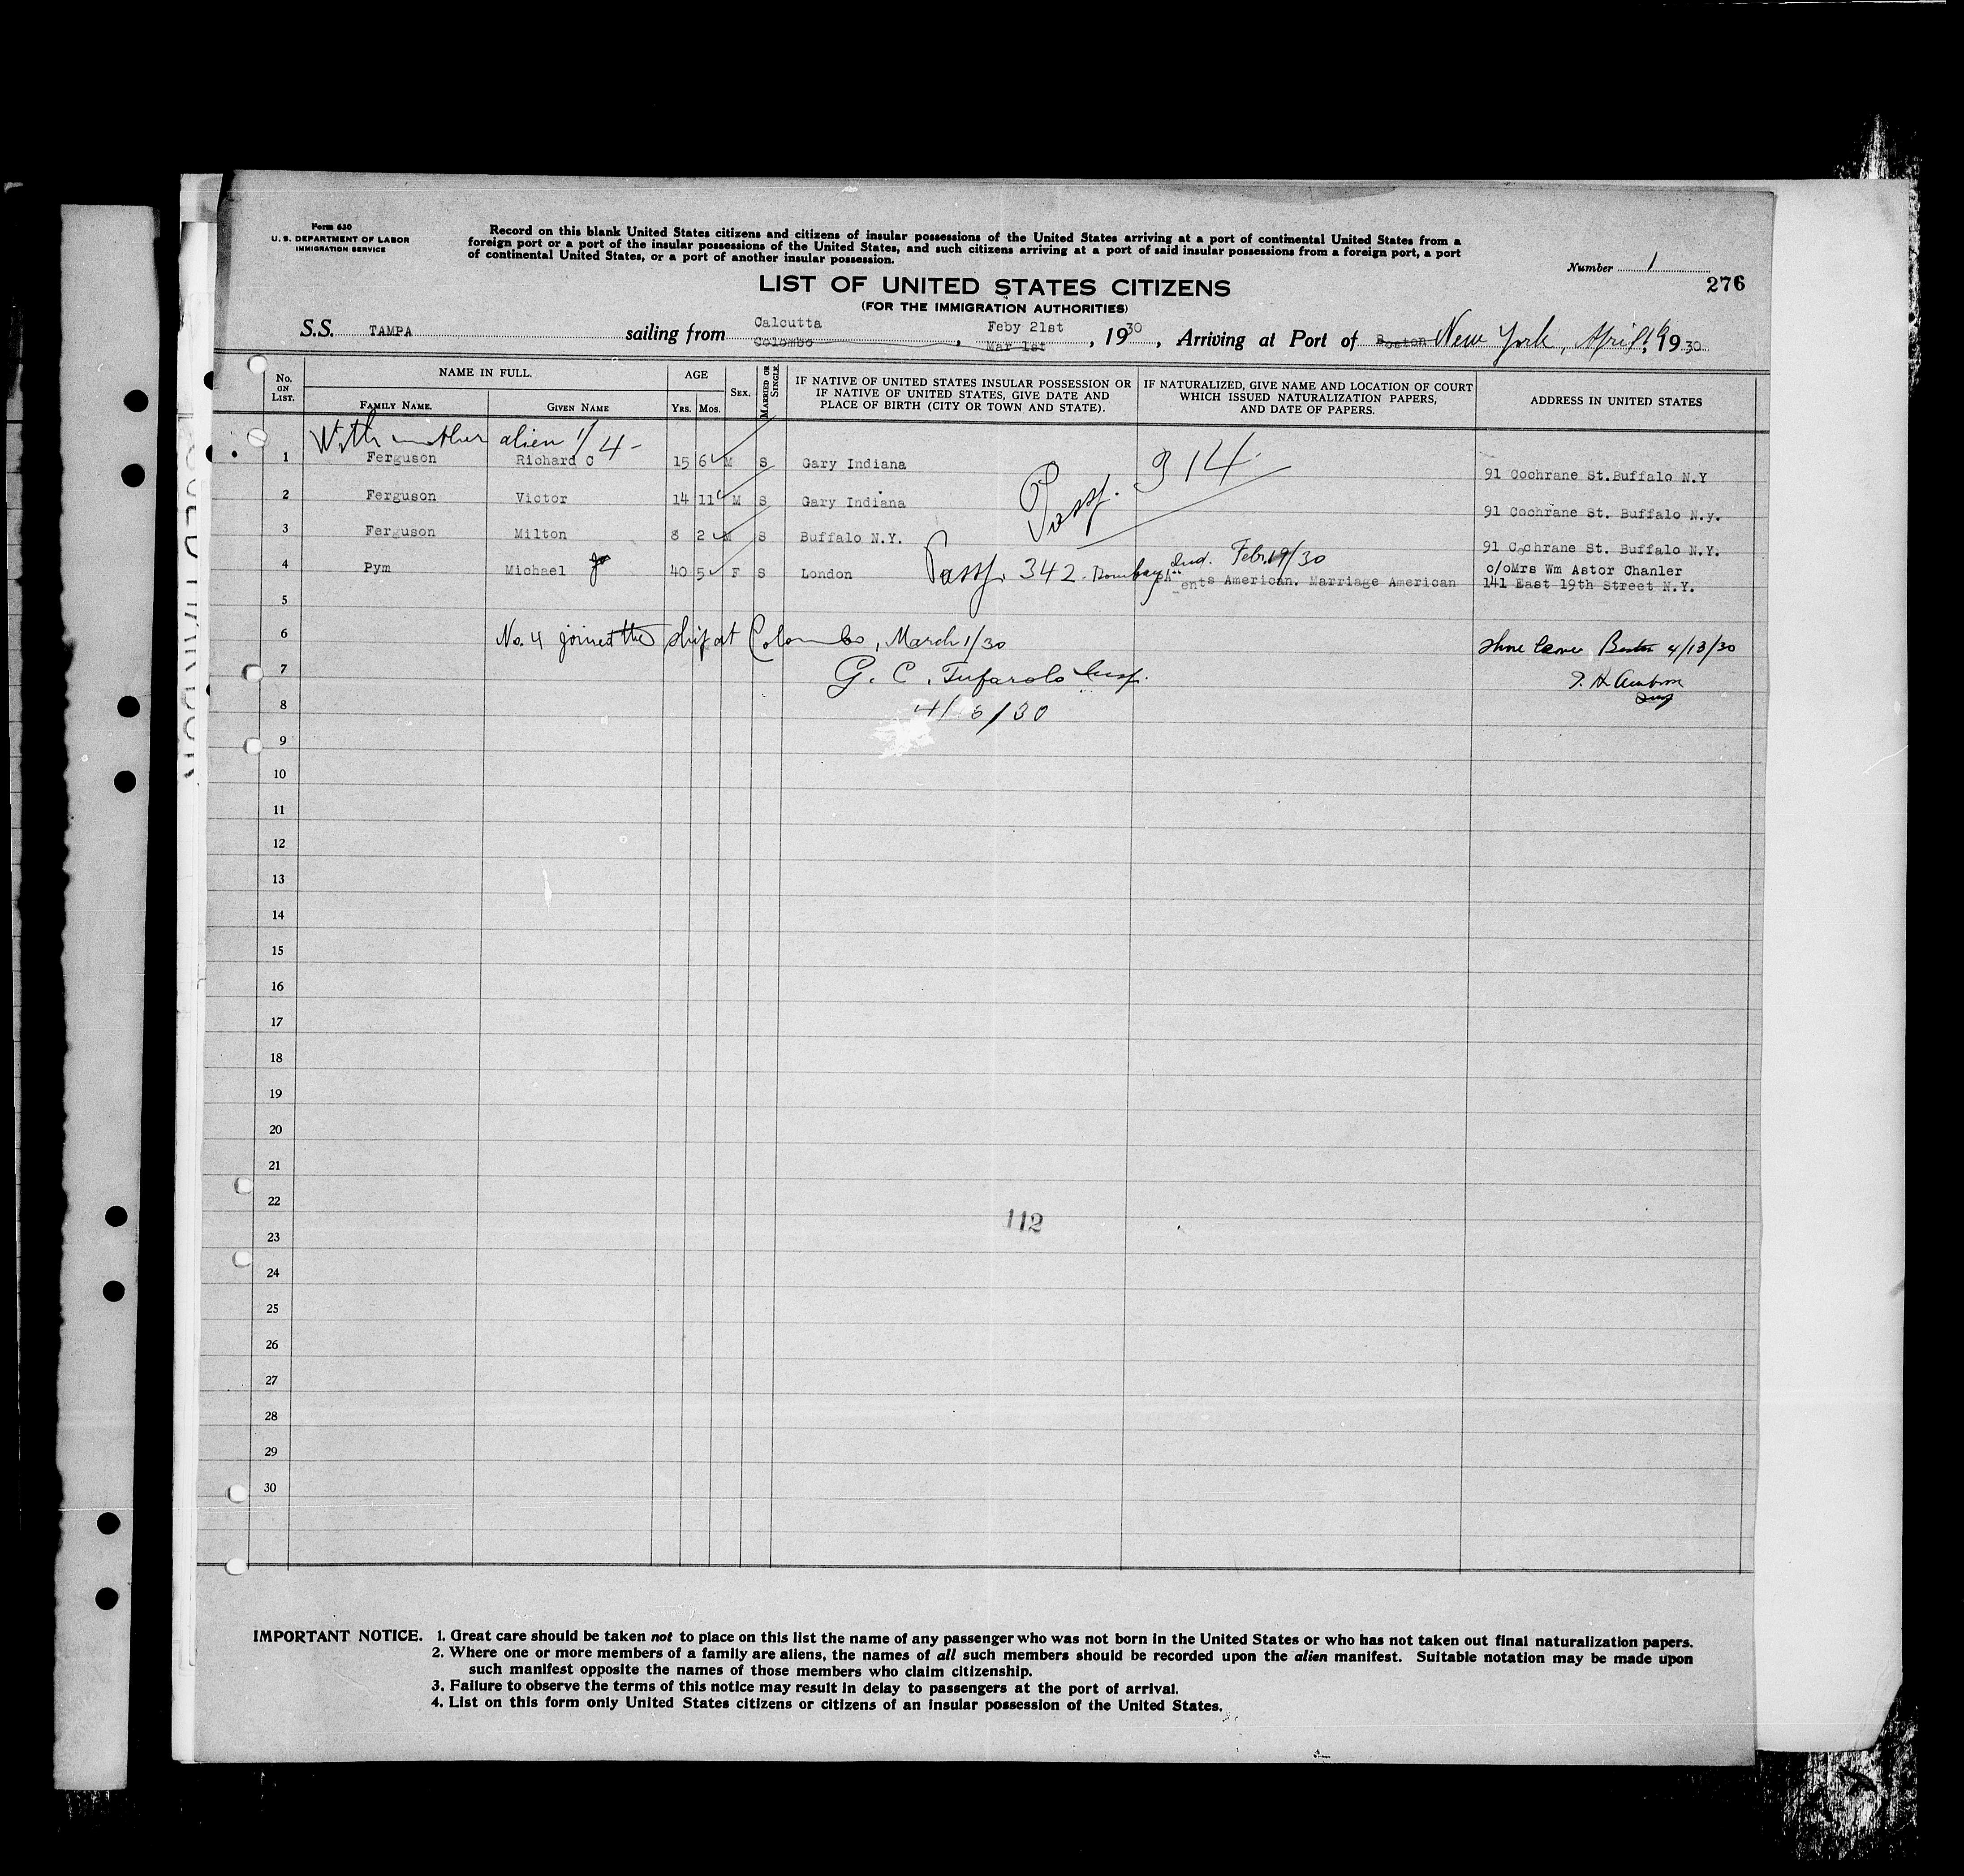 Form 630
U. S. DEPARTMENT OF LABOR
IMMIGRATION SERVICE
Record on this blank United States citizens and citizens of insular possessions of the United States arriving at a port of continental United States from a
foreign port or a port of the insular possessions of the United States, and such citizens arriving at a port of said insular possessions from a foreign port, a port
of continental United States, or a port of another insular possession.
Number 1
276
LIST OF UNITED STATES CITIZENS
(FOR THE IMMIGRATION AUTHORITIES)
S.S. TAMPA sailing from Calcutta Colombo, Feby 21st Mar 1st, 1930, Arriving at Port of Boston New York, April 1930
No. ON LIST.
NAME IN FULL.
FAMILY NAME.
GIVEN NAME
AGE
YRS. MOS.
SEX.
MARRIED OR SINGLE.
IF NATIVE OF UNITED STATES INSULAR POSSESSION OR
IF NATIVE OF UNITED STATES, GIVE DATE AND
PLACE OF BIRTH (CITY OR TOWN AND STATE).
IF NATURALIZED, GIVE NAME AND LOCATION OF COURT
WHICH ISSUED NATURALIZATION PAPERS,
AND DATE OF PAPERS.
ADDRESS IN UNITED STATES
With mother alien 1/4-
1 Ferguson Richard C 15 6 M S Gary Indiana 91 Cochrane St.Buffalo N.Y
Passp. 314
2 Ferguson Victor 14 11 M S Gary Indiana 91 Cochrane St. Buffalo N.y.
3 Ferguson Milton 8 2 M S Buffalo N.Y. 91 Cochrane St. Buffalo N.Y.
4 Pym Michael 40 5 F S London Passp. 342. Bombay Ind. Feb. 19/30
ents American. Marriage American
c/oMrs Wm Astor Chanler
141 East 19th Street N.Y.
5
6 No. 4 joined the ship at Colombo, March 1/30
Shore leave Boston 4/13/30
7 G. C. Tufarolo Insp.
8
9
10
11
12
13
14
15
16
17
18
19
20
21
22
112
23
24
25
26
27
28
29
30
IMPORTANT NOTICE. 1. Great care should be taken not to place on this list the name of any passenger who was not born in the United States or who has not taken out final naturalization papers.
2. Where one or more members of a family are aliens, the names of all such members should be recorded upon the alien manifest. Suitable notation may be made upon
such manifest opposite the names of those members who claim citizenship.
3. Failure to observe the terms of this notice may result in delay to passengers at the port of arrival.
4. List on this form only United States citizens or citizens of an insular possession of the United States.